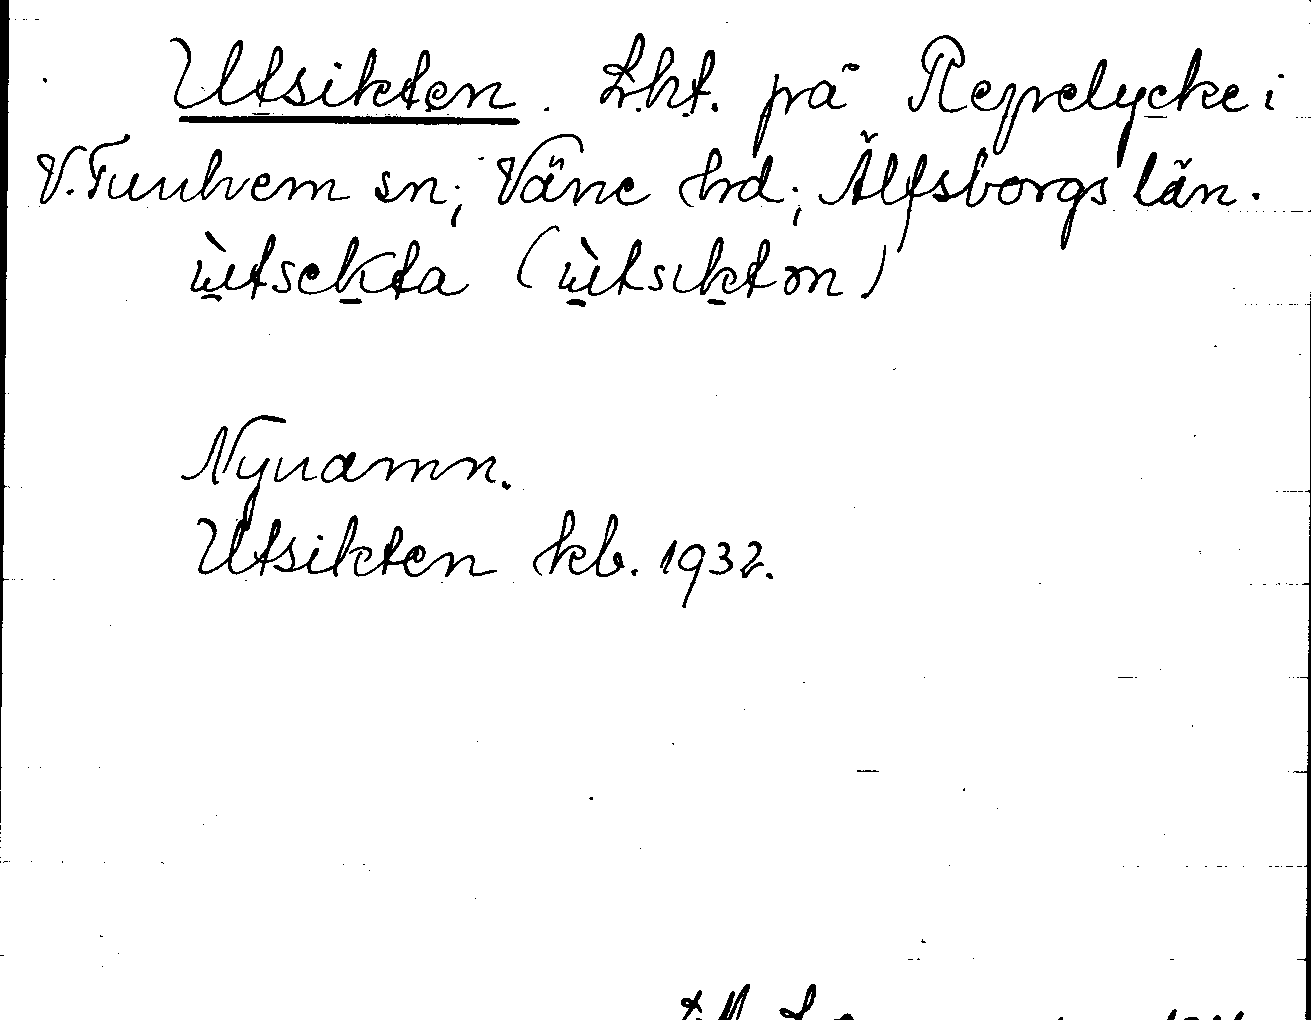 Utsikten. Lht. på Repelycke i
V. Tunhem sn; Väne hd; Älfsborgs län.
ùtsekta (ùtsıktən)
Nynamn.
Utsikten kb. 1932.